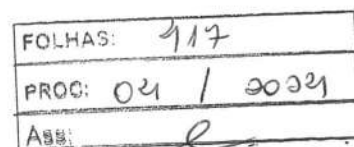 FOLHAS: 117
PROC: 04 / 2024
Ass: